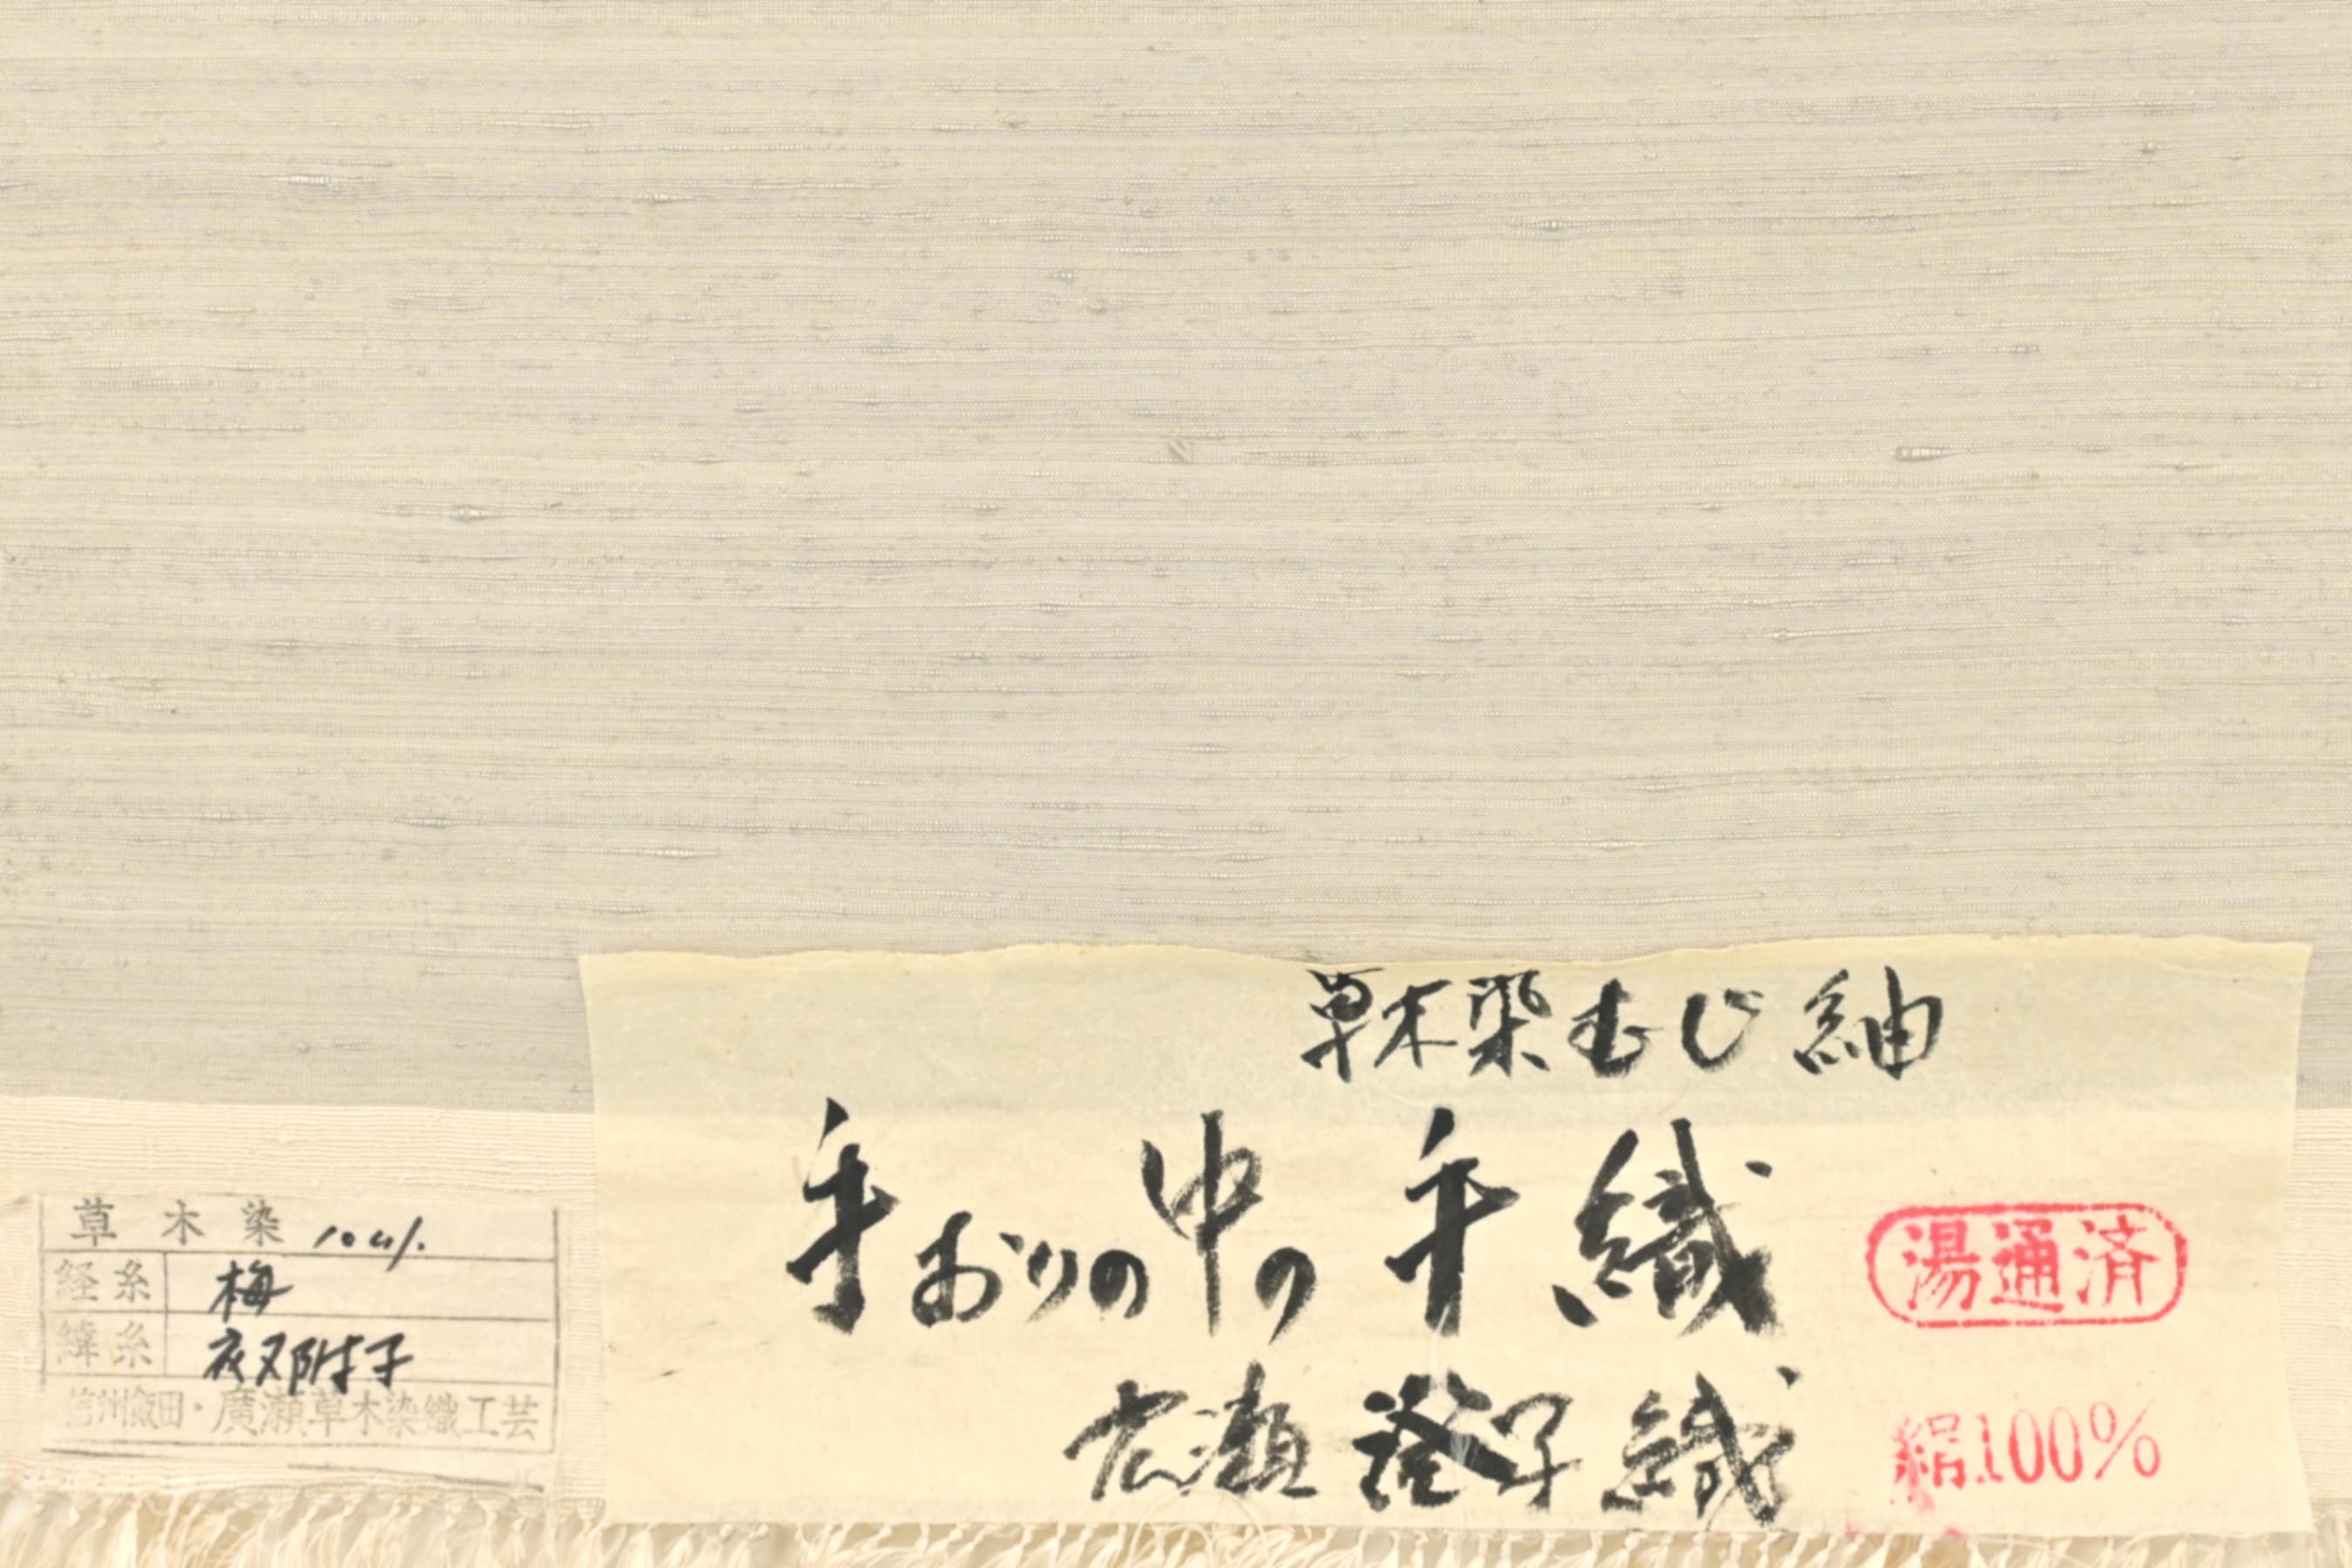 草木染むじ紬
手おりの中の手織
広瀬證子織
湯通済
絹100%
草木染 100%
経糸 梅
緯糸 夜叉附子
信州飯田・廣瀬草木染織工芸